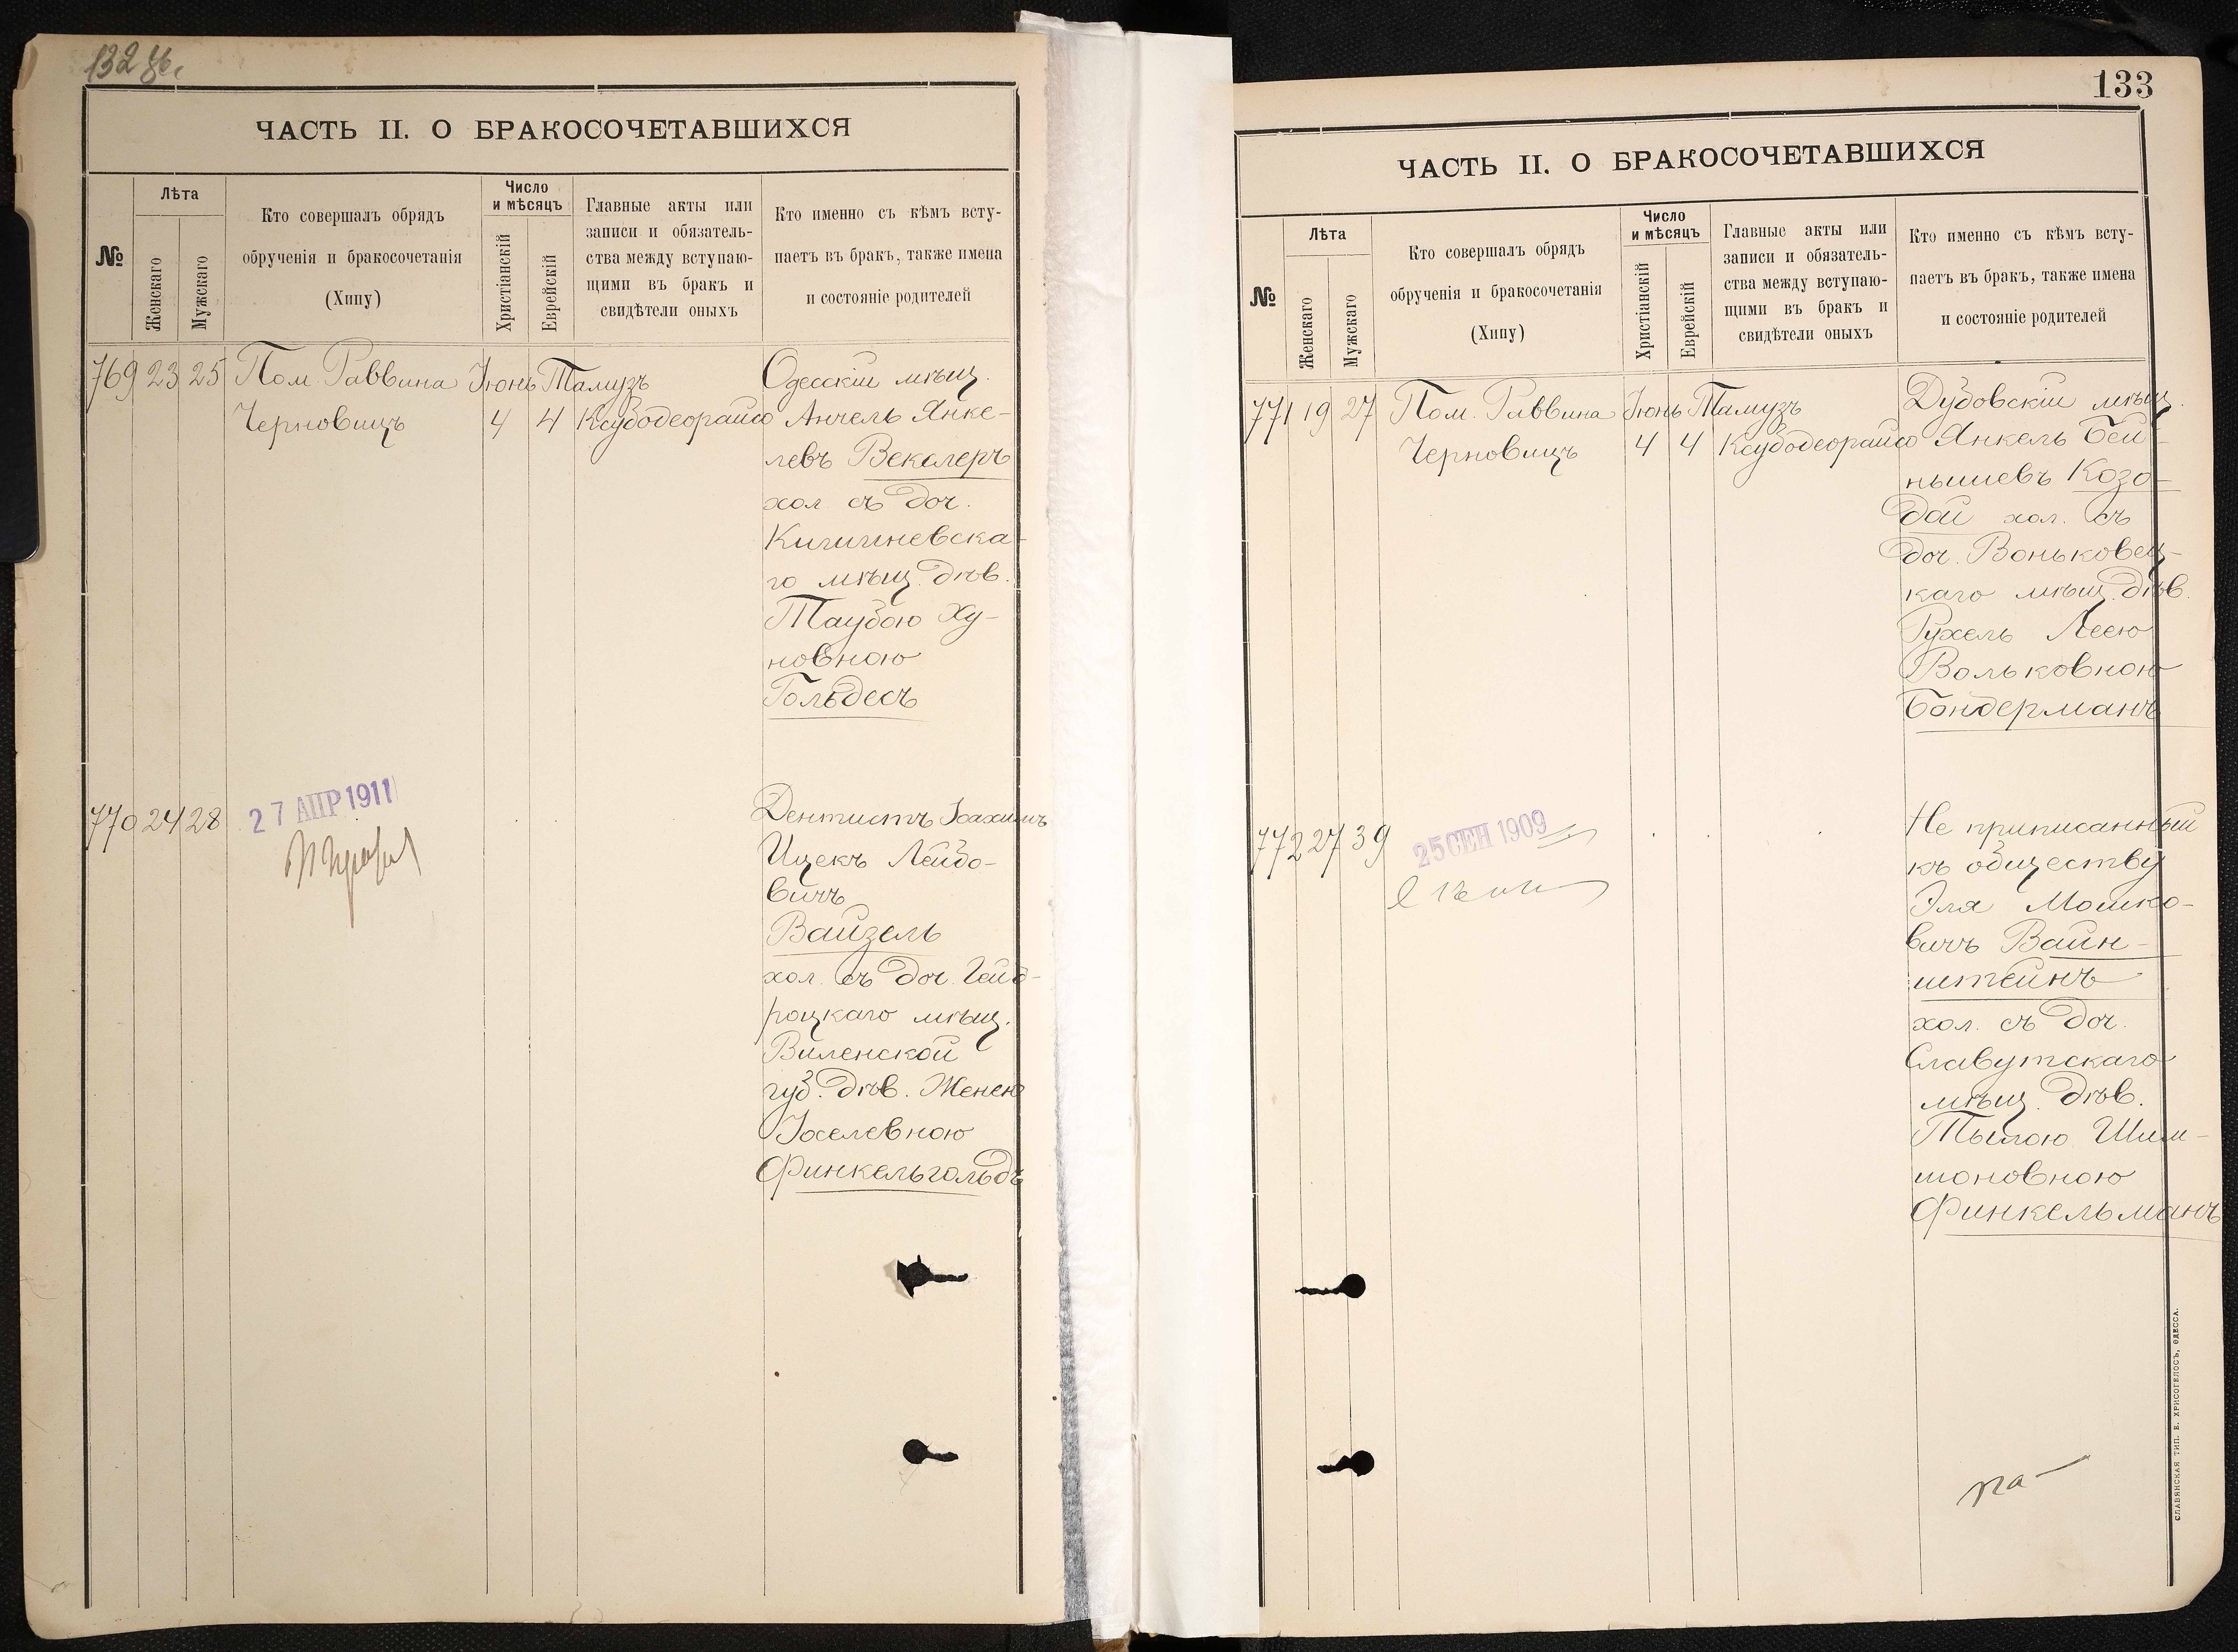 132 об.
ЧАСТЬ II. О БРАКОСОЧЕТАВШИХСЯ
№
Лѣта
Женскаго
Мужскаго
Кто совершалъ обрядъ
обрученія и бракосочетанія
(Хипу)
Число
и мѣсяцъ
Христіанскій
Еврейскій
Главные акты или
записи и обязатель-
ства между вступаю-
щими въ бракъ и
свидѣтели оныхъ
Кто именно съ кѣмъ всту-
паетъ въ бракъ, также имена
и состояніе родителей
769 23 25 Пом. Раввина Іюнь Тамузъ
Черновицъ 4 4 Ксубодеорайсо
Одесскій мѣщ.
Анчель Янке-
левъ Векслеръ
хол. съ доч.
Кишиневска-
го мѣщ. дѣв.
Таубою Ху-
новною
Гольдесъ
770 24 28
27 АПР 1911
Дентистъ Іоахимъ
Ицекъ Лейбо-
вичъ
Вайзель
хол. съ доч. Гейд-
роцкаго мѣщ.
Виленской
губ. дѣв. Женею
Іоселевною
Финкельгольдъ
133
ЧАСТЬ II. О БРАКОСОЧЕТАВШИХСЯ
№
Лѣта
Женскаго
Мужскаго
Кто совершалъ обрядъ
обрученія и бракосочетанія
(Хипу)
Число
и мѣсяцъ
Христіанскій
Еврейскій
Главные акты или
записи и обязатель-
ства между вступаю-
щими въ бракъ и
свидѣтели оныхъ
Кто именно съ кѣмъ всту-
паетъ въ бракъ, также имена
и состояніе родителей
771 19 27 Пом. Раввина Іюнь Тамузъ
Черновицъ 4 4 Ксубодеорайсо
Дубовскій мѣщ.
Янкель Бей-
нышевъ Козо-
дой хол. съ
доч. Воньковец-
каго мѣщ. дѣв.
Рухель Леею
Вольковною
Бондерманъ
772 27 39
25 СЕН 1909
Не приписанный
къ обществу
Эля Мошко-
вичъ Вайн-
штейнъ
хол. съ доч.
Славутскаго
мѣщ. дѣв.
Тылою Шли-
моновною
Финкельманъ
СЛАВЯНСКАЯ ТИП. Е. ХРИСОГЕЛОСЪ, ОДЕССА.